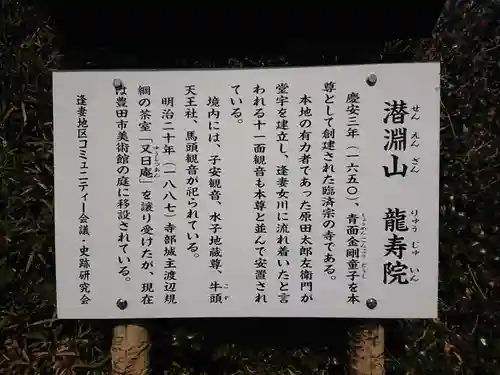 潜淵山 龍寿院
せん えん ざん りゅう じゅ いん
慶安三年（一六五〇）、青面金剛童子を本
しょうめんこんごうどうじ
尊として創建された臨済宗の寺である。
本地の有力者であった原田太郎左衛門が
堂宇を建立し、逢妻女川に流れ着いたと言
われる十一面観音も本尊と並んで安置され
ている。
境内には、子安観音、水子地蔵尊、牛頭
ごず
天王社、馬頭観音が祀られている。
明治二十年（一八八七）寺部城主渡辺規
綱の茶室「又日庵」を譲り受けたが、現在
ゆうじつあん
は豊田市美術館の庭に移設されている。
逢妻地区コミュニティー会議・史跡研究会